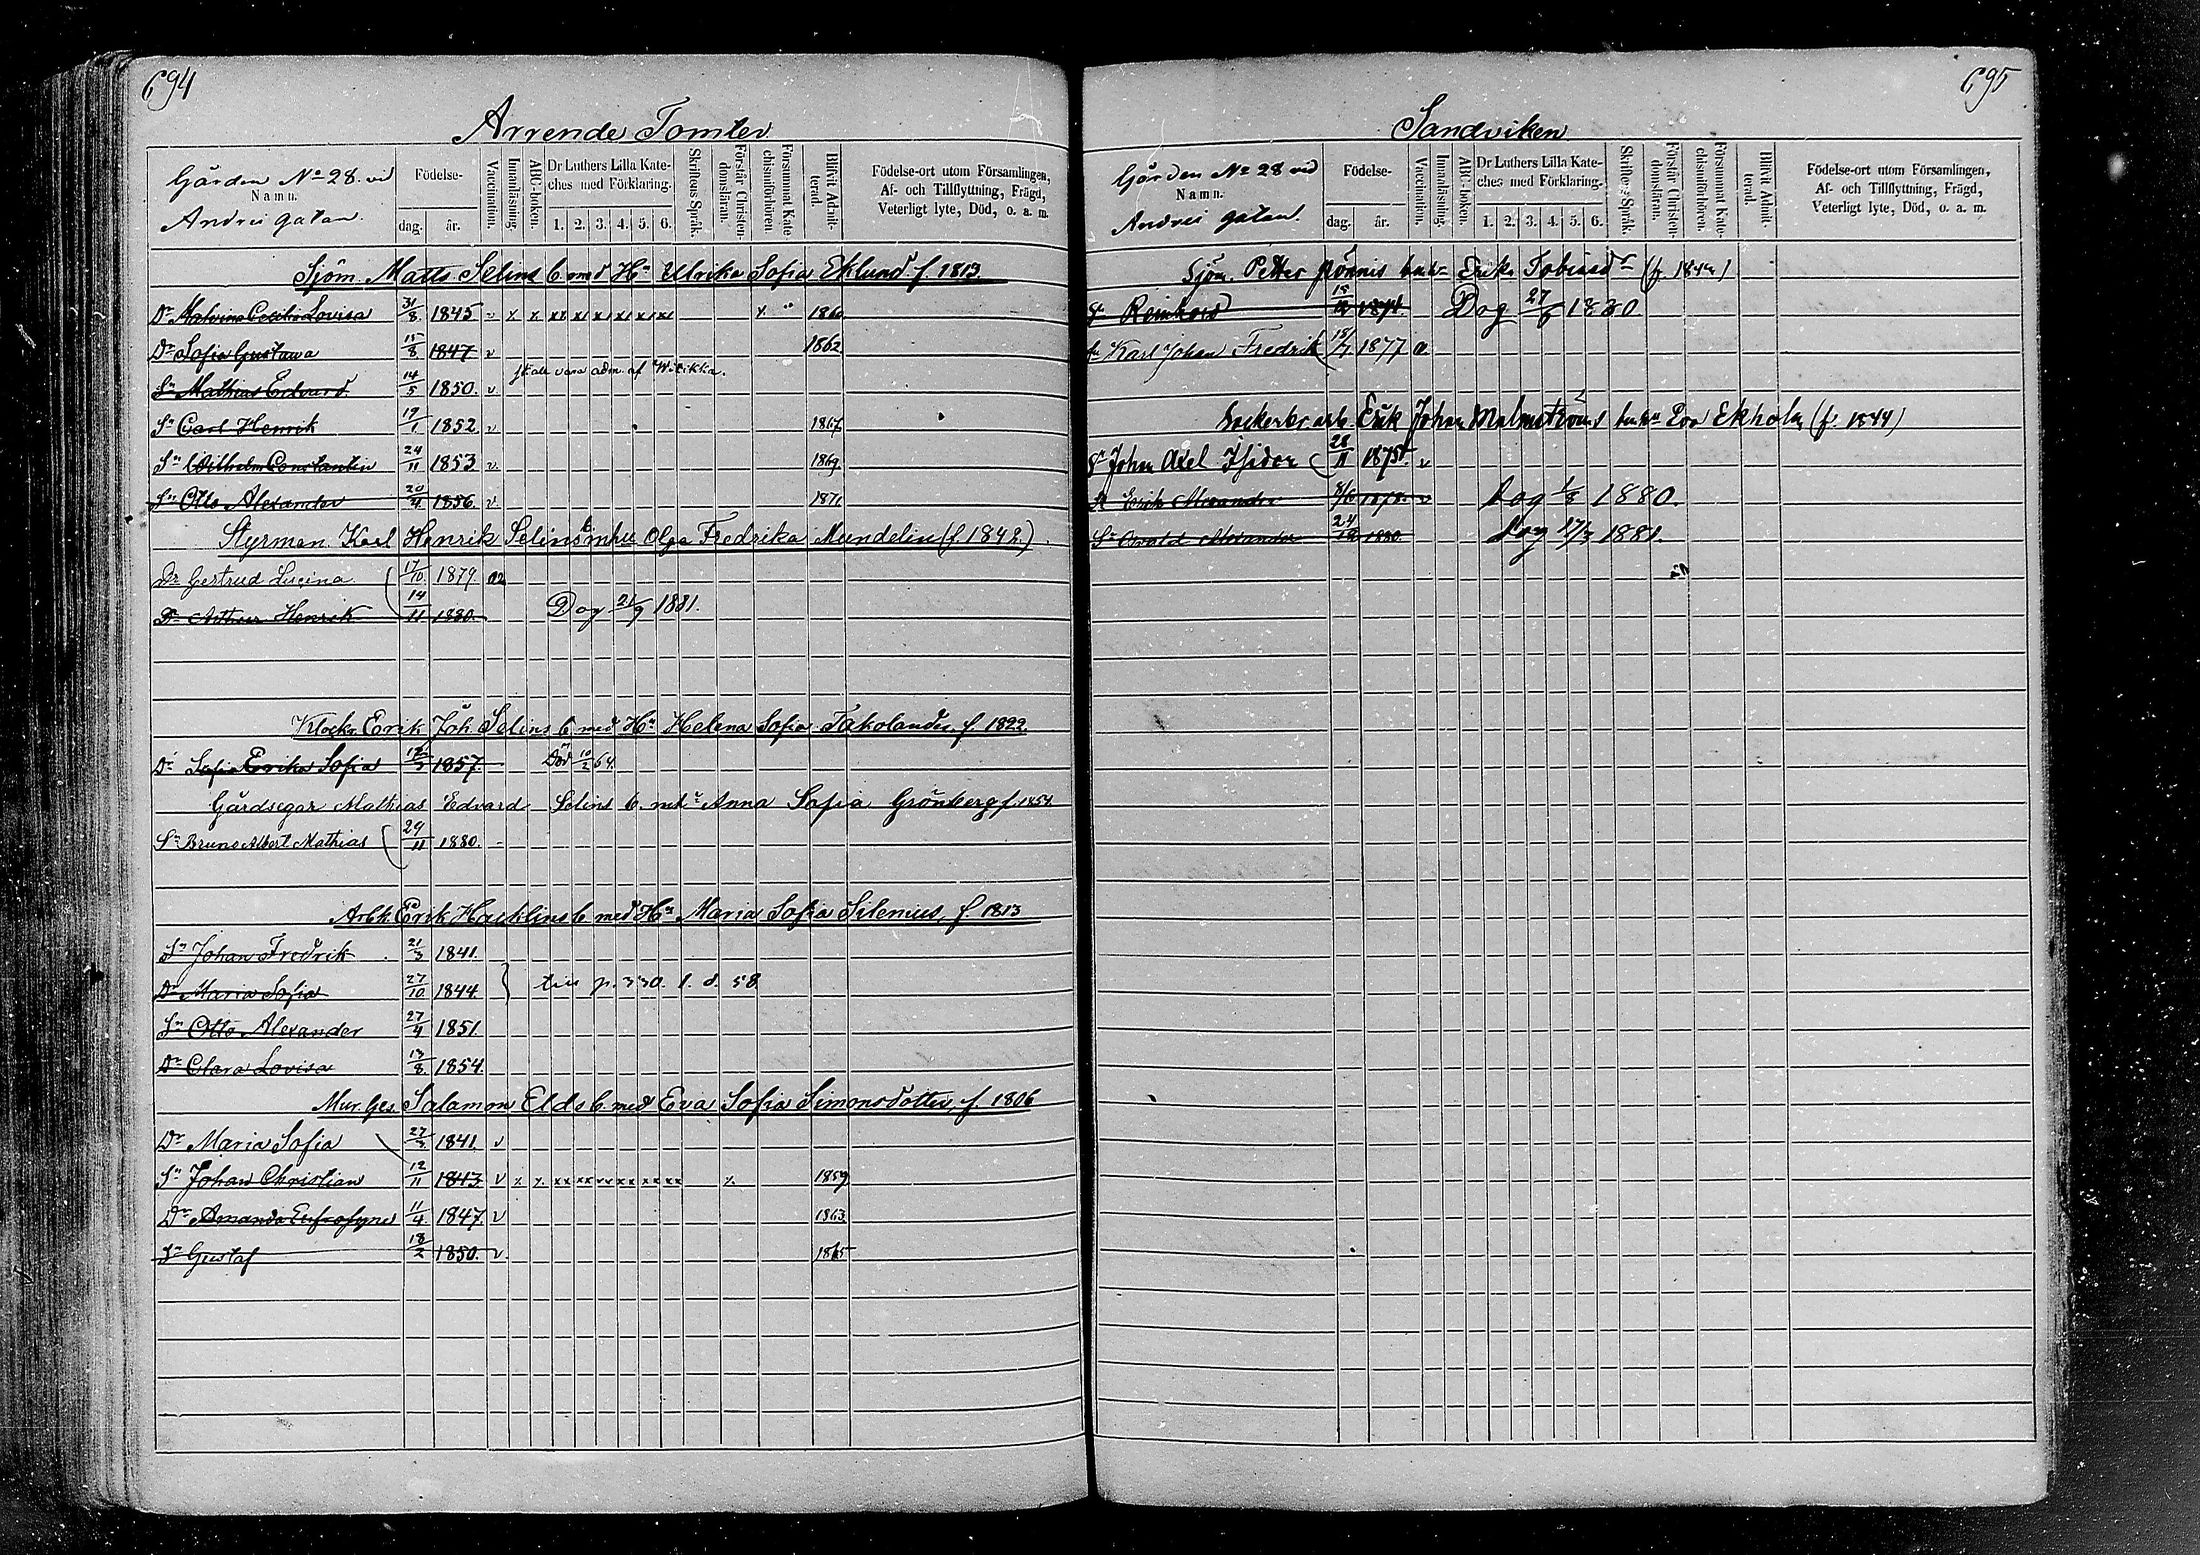 694
Arrende Tomter
Gården No 28 vid
Namn.
Andreé gatan.
Födelse-
dag. år.
Vaccination.
Innanläsning.
ABC-boken.
Dr Luthers Lilla Kate-
ches med Förklaring.
1. 2. 3. 4. 5. 6.
Skriftens Språk.
Förstår Christen-
domsläran.
Försummat Kate-
chismiförhören
Blifvit Admit-
terad.
Födelse-ort utom Församlingen,
Af- och Tillflyttning, Frägd,
Veterligt lyte, Död, o. a. m.
Sjöm. Matts Selins b. med Hu Ulrika Sofia Eklund f. 1813.
Dr Malvina Cecilia Lovisa 31/8 1845 v x x xx x x x x xx x " 1860
Dr Sofia Gustava 15/8 1847 v 1862
Sn Mathias Edvard 14/5 1850. v vara adm. af
Sn Carl Henrik 19/1 1852 v 1867
Sn Wilhelm Constantin 24/11 1853 v. 1869.
Sn Otto Alexander 20/4 1856. v. 1871.
Styrman Karl Henrik Selins b mhu Olga Fredrika Mundelin (f 1842)
Dr Gertrud Lucina 17/10 1879.
Arthur Henrik 14/11 1880. Dog 21/9 1881.
Erik Joh. Selins b. med Hu Helena Sofia Takolander f. 1822.
Dr Sofia Erika Sofia 1857. Död 10/2 64.
Gårdsegar Mathias Edvard Selins b. Anna Sofia Grönberg f. 1854
Sn Bruno Albert Mathias 29/11 1880.
Arbk. Erik Hacklins b. med Hu Maria Sofia Silenius, f. 1813
Sn Johan Fredrik 21/3 1841.
Dr Maria Sofia 27/10 1844 } p. 330. l. d. 58
Sn Otto Alexander 27/4 1851.
Dr Clara Lovisa 13/8 1854.
Mur. Ges. Salamon Elds b. med Eva Sofia Simonsdotter, f. 1806
Dr Maria Sofia 27/3 1841. v
Sn Johan Christian 12/11 1843 v x x xx xx xx xx xx xx x. 1859
Dr Amanda Eufrosyne 11/4 1847. v 1863
Sn Gustaf 18/2 1850. v. 1865
695
Sandviken
Gården No 28 vid
Namn.
Andreé gatan.
Födelse-
dag. år.
Vaccination.
Innanläsning.
ABC-boken.
Dr Luthers Lilla Kate-
ches med Förklaring.
1. 2. 3. 4. 5. 6.
Skriftens Språk.
Förstår Christen-
domsläran.
Försummat Kate-
chismiförhören.
Blifvit Admit-
terad.
Födelse-ort utom Församlingen,
Af- och Tillflyttning, Frägd,
Veterligt lyte, Död, o. a. m.
Sjöm. Petter Erika Tobiasdr
Sn Reinhold 1874. Dog 27/6 1880
Sn Karl Johan Fredrik 1877
Sockerbr. arb. Erik Johan Malmströms Eva Ekholm (f. 1844)
Sn Johan Axel Isidor 28/11 1875. v
Sn Erik Alexander 1878. v Dog 1/8 1880.
Sn Osvald Alexander 24/12 1880. Dog 1881.